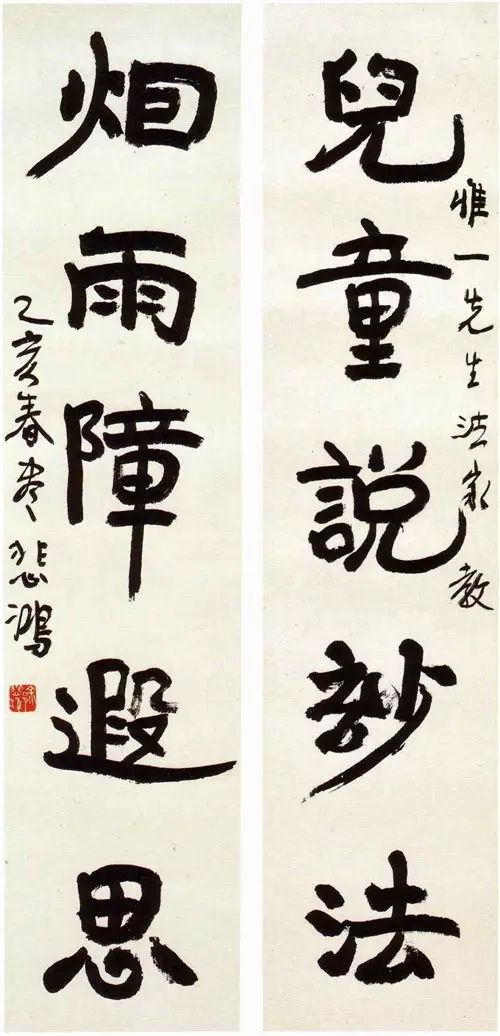 兒童說訬法
惟一先生法家 教
烟雨障遐思
乙亥春尽悲鴻